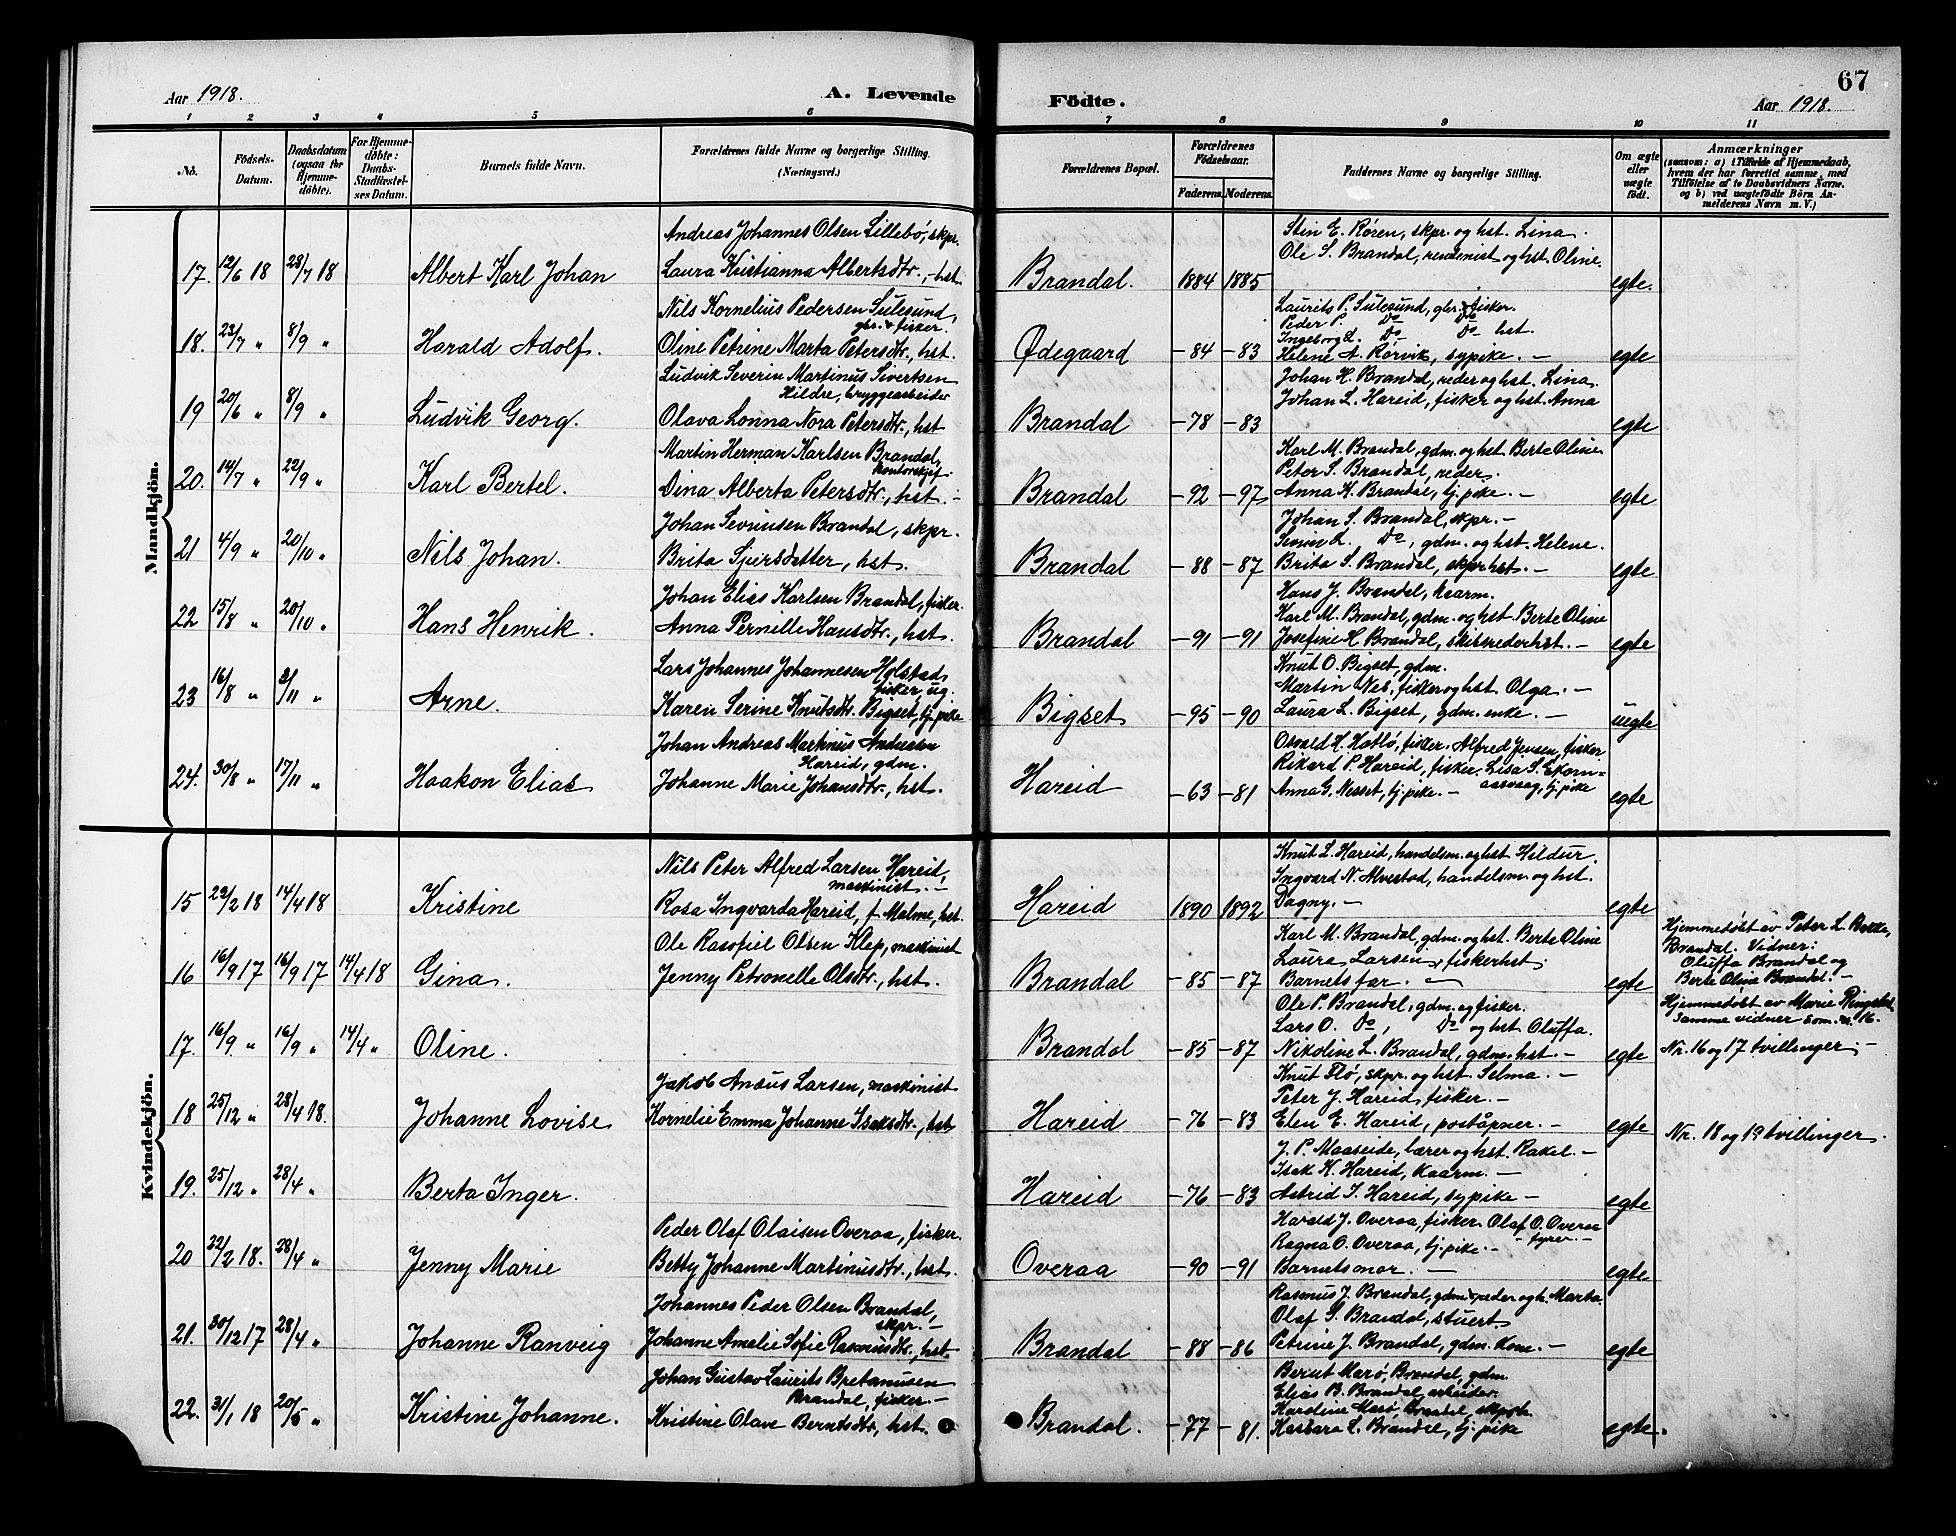 67
Aar 1918.
A. Levende
Födte.
Aar 1918.
1 2 3 4 5 6 7 8 9 10 11
No.
Födsels-
Datum.
Daabsdatum
(ogsaa for
Hjemme-
döbte).
For Hjemme-
döbte:
Daabs-
Stadfæstel-
ses Datum.
Barnets fulde Navn.
Forældrenes fulde Navne og borgerlige Stilling.
(Næringsvei.)
Forældrenes Bopæl.
Forældrenes
Födselsaar.
Faderens. Moderens.
Faddernes Navne og borgerlige Stilling.
Om ægte
eller
uægte
født.
Anmærkninger
(saasom: a) i Tilfælde af Hjemmedaab,
hvem der har forrettet samme, med
Tilföielse af to Daabsvidners Navne,
og b) ved uægtefödte Börn An-
melderens Navn m. V.)
Mandkjön.
Andreas Johannes Olsen Lillebø, skpr.
Stin E. Røren, skpr. og hst. Lina.
Ole S. Brandal, rentenist og hst. Oline.
17. 12/6 18 28/7 18 Albert Karl Johan Laura Kristianna Albertsdtr., hst. Brandal. 1884 1885 egte.
Nils Kornelius Pedersen Sulesund,
gbr. & fisker.
Laurits P. Sulesund, gbr. & fisker.
Peder P. Do Do
Ingeborg L. Do Do hst.
18. 23/7 " 8/9 " Harald Adolf. Oline Petrine Marta Petersdtr., hst. Ødegaard -84 -83 Helene A. Rørvik, sypike. - egte
Ludvik Severin Martinus Sivertsen
Hildre, bryggearbeider
Johan H. Brandal, reder og hst. Lina.
Johan L. Hareid, fisker og hst. Anna
19 20/6 " 8/9 " Ludvik Georg. Olava Lonna Nora Petersdtr., hst Brandal -78 -83 egte
Martin Herman Karlsen Brandal,
kontorchef.
Karl M. Brandal, gdm. og hst. Berte Oline
Peter S. Brandal, reder.
20. 14/7 " 22/9 " Karl Bertel. Dina Alberta Petersdtr., hst. - Brandal -92 -97 Anna K. Brandal, tj. pike. - egte
Johan Sevrinsen Brandal, skpr.
Johan S. Brandal, skpr. -
Sevrin L. Do, gdm. og hst. Helene.
21 4/9 " 20/10 " Nils Johan. Brita Sjursdatter, hst. Brandal -88 -87 Brita S. Brandal, skprhst. - egte
Johan Elias Karlsen Brandal, fisker.
Hans J. Brandal, kaarm.
Karl M. Brandal, gdm. og hst. Berte Oline
22 15/8 " 20/10 " Hans Henrik. Anna Pernille Hansdtr., hst. Brandal -91 -91 Josefine H. Brandal, skibsrederhst. - egte
Lars Johannes Johannesen Holstad,
fisker, ug.
Knut O. Bigset, gdm.
Martin Nes, fisker og hst Olga. -
23 16/8 " 3/11 " Arne. Karen Serine Knutsdtr. Bigset, tj. pike Bigset -95 -90 Laura L. Bigset, gdm. enke. - uegte
Johan Andreas Martinus Andresen
Hareid, gdm.
Osvald H. Hatlø, fisker. Alfred Jensen, fisker
Rikard P. Hareid, fisker. Lisa S. Ekorn-
aasvaag, tj. pike
24. 30/8 " 17/11 " Haakon Elias Johanne Marie Johansdtr., hst. Hareid -63 -81 Anna G. Nesset, tj. pike. - egte
Kvindekjön.
Nils Peter Alfred Larsen Hareid,
maskinist. -
Knut L. Hareid, handelsm. og hst Hildur.
Ingvard N. Alvestad, handelsm. og hst.
15 22/2 18 14/4 18 Kristine Rosa Ingvarda Hareid, f. Malme, hst. Hareid 1890 1892 Dagny. - egte
Ole Rasofiel Olsen Klep, maskinist
Karl M. Brandal, gdm. og hst. Berte Oline
Laura Larsen, fiskerhst.
Hjemmedøbt av Peter L. Bakke,
Brandal. Vidner:
Oluffa Brandal og
Berte Olina Brandal. -
16 16/9 17 16/9 17 14/4 18 Gina. Jenny Petronelle Olsdtr., hst. Brandal -85 -87 Barnets far. - egte
Ole P. Brandal, gdm. og fisker.
Lars O. Do, Do og hst Oluffa.
Hjemmedøbt av Marie Ringstad
samme vidner som nr. 16.
17. 16/9 " 16/9 " 14/4 " Oline. Brandal -85 -87 Nikoline L. Brandal, gdm. hst. - egte Nr. 16 og 17 tvillinger. -
Jakob Ansus Larsen, maskinist
Knut Flø, skpr. og hst. Selma. -
Peter J. Hareid, fisker. -
18 25/12 " 28/4 18. Johanne Lovise Kornelie Emma Johanne Isaksdtr., hst Hareid -76 -83 Elen E. Hareid, poståpner. - egte Nr. 18 og 19 tvillinger.
J. P. Maaseide, lærer og hst. Rakel. -
Isak K. Hareid, kaarm. -
19. 25/12 " 28/4 " Berta Inger. Hareid -76 -83 Astrid I. Hareid, sypike - egte
Peder Olaf Olaisen Overaa, fisker.
Harald J. Overaa, fisker. Olaf O. Overaa
- fyrer. -
Ragna O. Overaa, tj. pike. -
20 22/2 18. 28/4 " Jenny Marie Betty Johanne Martinusdtr., hst. Overaa -90 -91 Barnets mor. - egte
Johannes Peder Olsen Brandal,
skpr. -
Rasmus J. Brandal, gdm. & reder og h. Marta.
Olaf S. Brandal, stuert.
21. 30/12 17 28/4 " Johanne Ranveig Johanne Amalie Sofie Rasmusdtr., hst. Brandal -88 -86 Petrine J. Brandal, gdm. kone. - egte
Johan Gustav Laurits Bretanusen
Brandal, fisker. -
Bernt Marø, Brandal, gdm.
Elias B. Brandal, arbeider.
Karoline Marø Brandal,
22. 31/1 18 20/5 " Kristine Johanne. Kristine Olave Berntsdtr., hst. Brandal. -77 -81. Barbara L. Brandal, tj. pike egte.